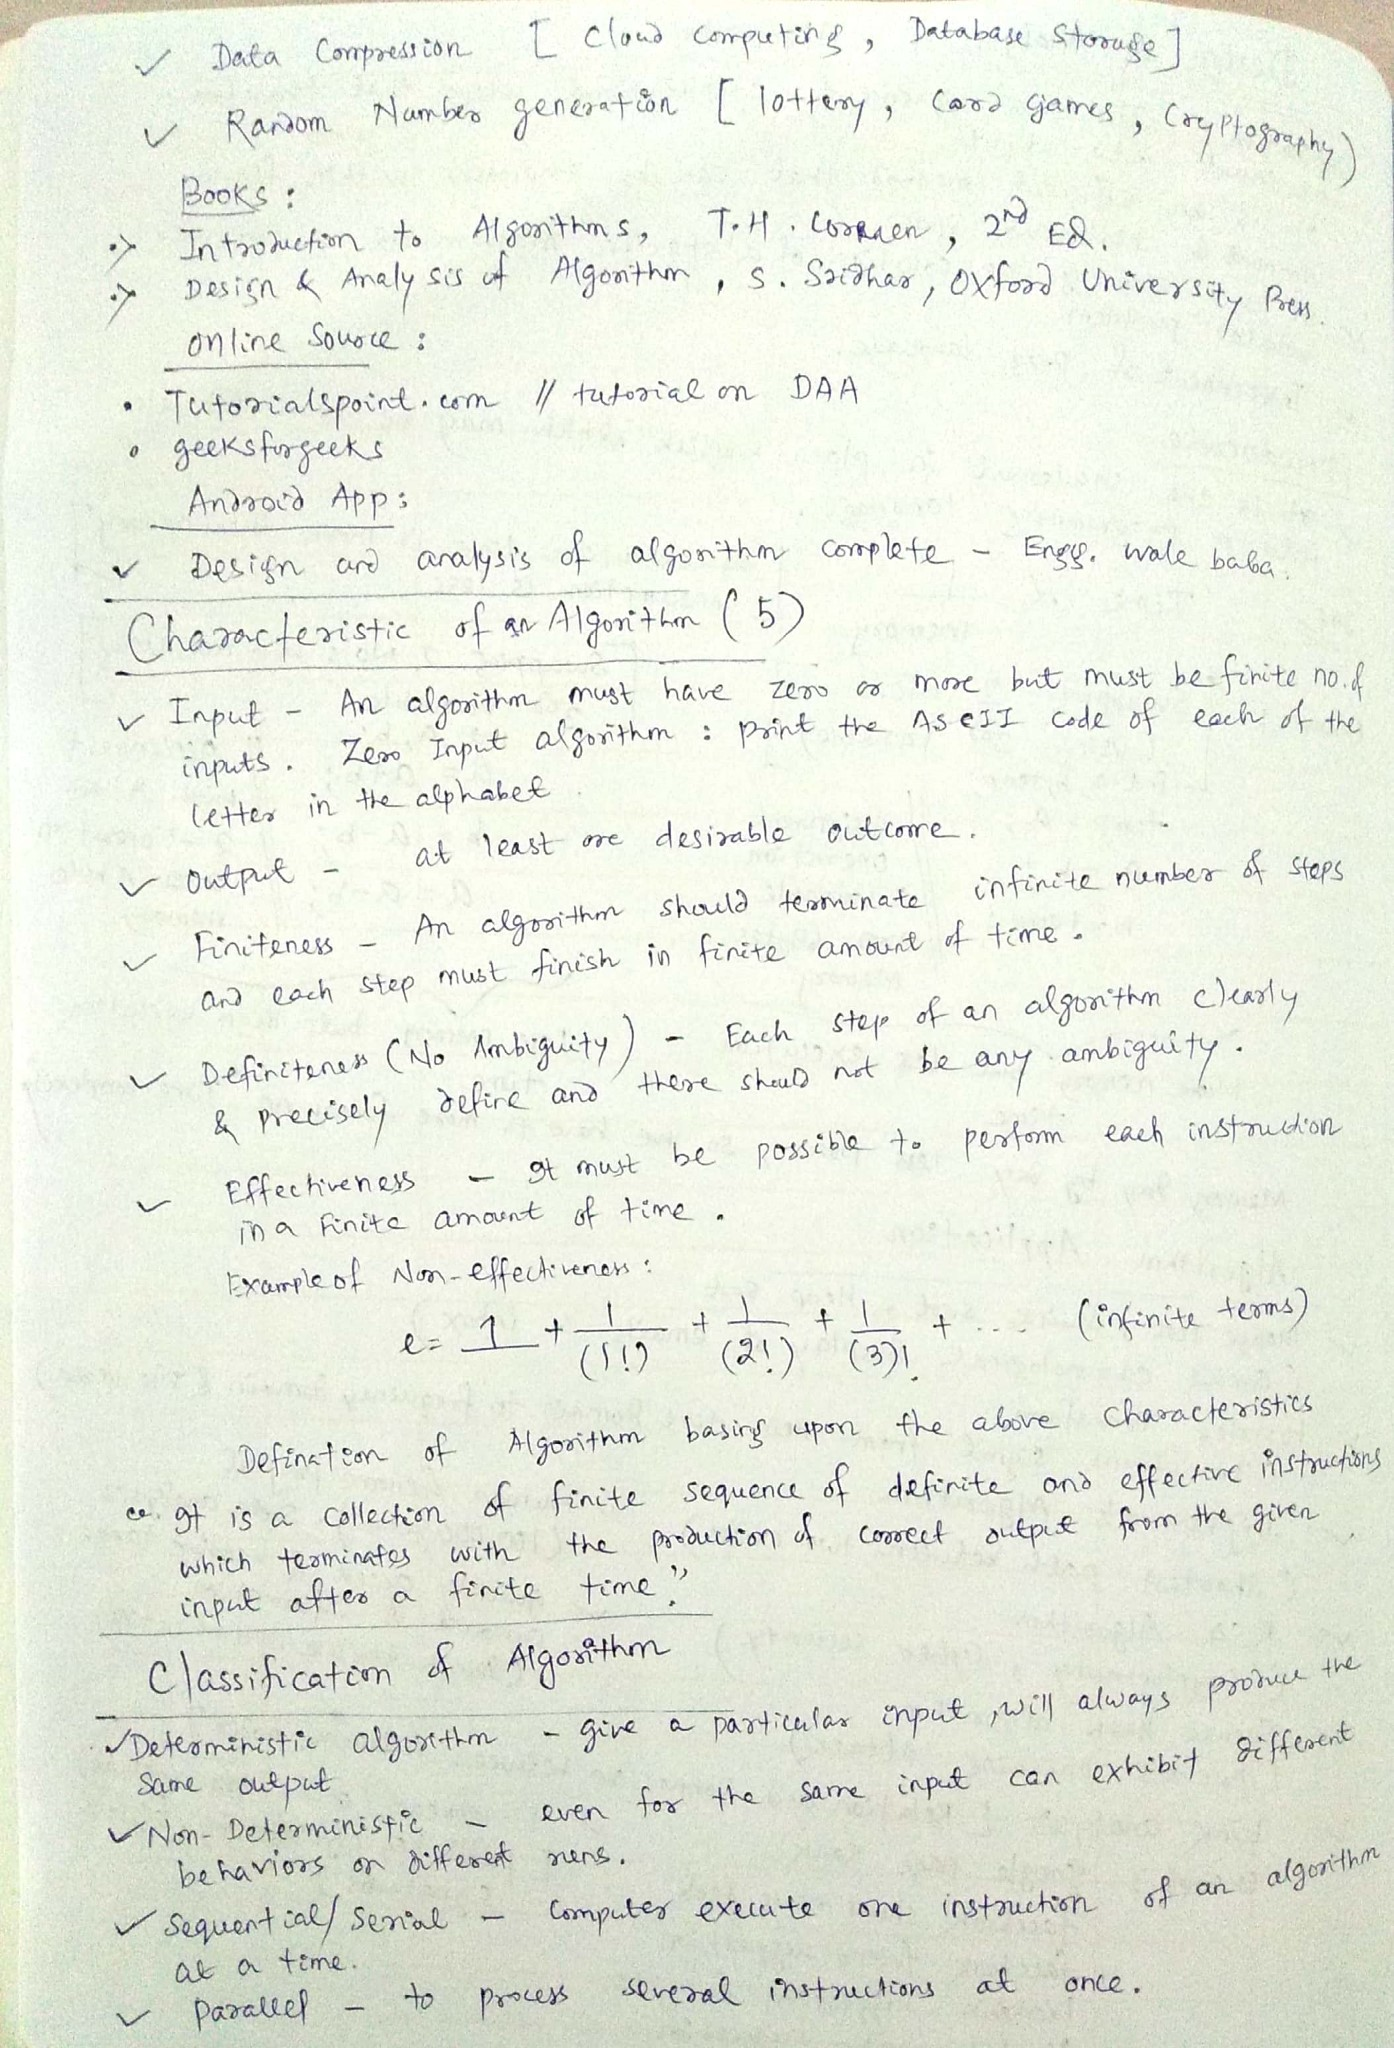 ✓ Data Compression [ Cloud computing, Database Storage ]
✓ Random Number generation [ lottery, Card games, Cryptography )
Books :
Introduction to Algorithms, T.H. Cormen, 2nd Ed.
Design & Analysis of Algorithm, S. Sridhar, Oxford University Press.
online Source :
• Tutorialspoint.com // tutorial on DAA
• geeksforgeeks
Android App :
✓ Design and analysis of algorithm complete - Engg. wale baba.
Characteristic of an Algorithm (5)
✓ Input - An algorithm must have zero or more but must be finite no. of
inputs. Zero Input algorithm : print the ASCII code of each of the
letter in the alphabet.
✓ Output - at least one desirable outcome.
✓ Finiteness - An algorithm should terminate infinite number of steps
and each step must finish in finite amount of time.
✓ Definiteness (No Ambiguity) - Each step of an algorithm clearly
& precisely define and there should not be any ambiguity.
✓ Effectiveness - It must be possible to perform each instruction
in a Finite amount of time.
Example of Non-effectiveness :
e = 1 + 1/(1!) + 1/(2!) + 1/(3)! + ... (infinite terms)
Defination of Algorithm basing upon the above characteristics
"It is a collection of finite sequence of definite and effective instructions
which terminates with the production of correct output from the given
input after a finite time."
Classification of Algorithm
✓ Deterministic algorithm - give a particular input, will always produce the
same output
✓ Non-Deterministic - even for the same input can exhibit different
behaviors on different runs.
✓ Sequential/Serial - Computer execute one instruction of an algorithm
at a time.
✓ Parallel - to process several instructions at once.